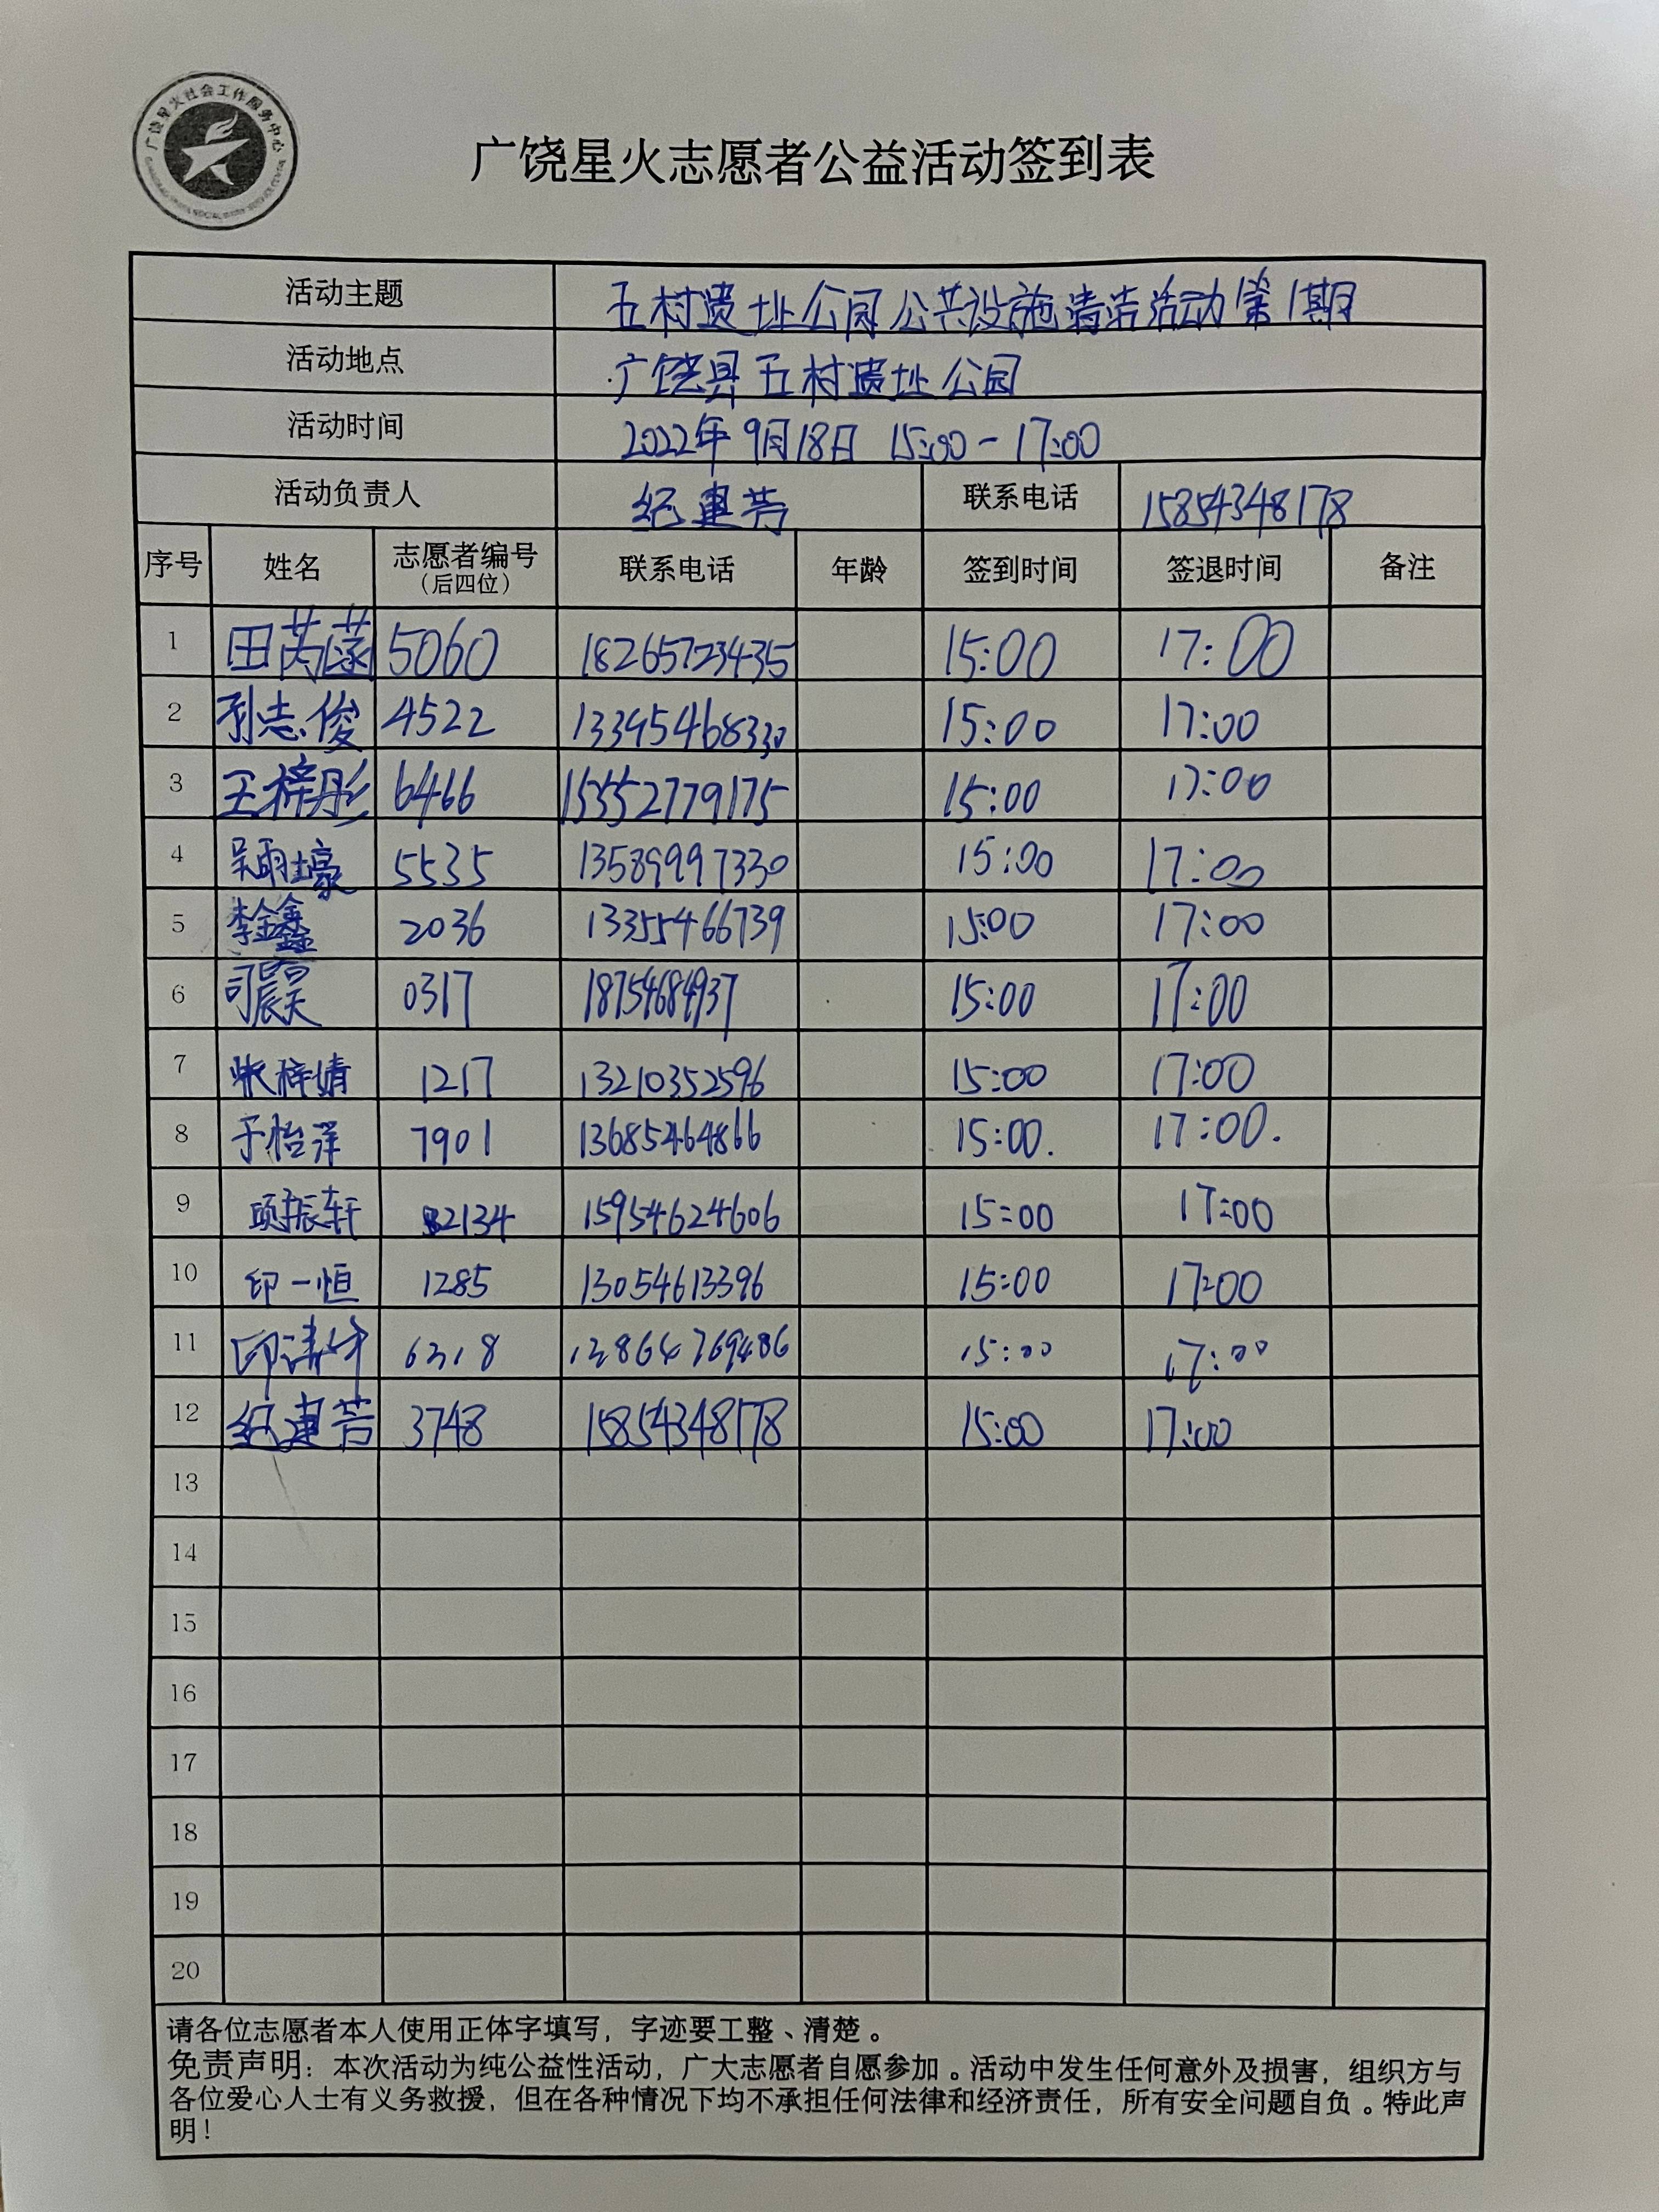 广饶星火社会工作服务中心
广饶星火志愿者公益活动签到表
活动主题 五村遗址公园公共设施清洁活动第1期
活动地点 广饶县五村遗址公园
活动时间 2022年9月18日 15:00-17:00
活动负责人 纪建芳 联系电话 15854348178
序号 姓名 志愿者编号（后四位） 联系电话 年龄 签到时间 签退时间 备注
1 田芮菡 5060 18265723435 15:00 17:00
2 孙志俊 4522 13395468330 15:00 17:00
3 王梓彤 6466 15552779175 15:00 17:00
4 吴雨壕 5535 13589997330 15:00 17:00
5 李金鑫 2036 13355466739 15:00 17:00
6 司晨昊 0317 18754684937 15:00 17:00
7 张梓婧 1217 13210352596 15:00 17:00
8 于怡洋 7901 13685464866 15:00. 17:00.
9 项振轩 2134 15954624606 15:00 17:00
10 印一恒 1285 13054613396 15:00 17:00
11 6318 15:00 17:00
12 纪建芳 3748 15854348178 15:00 17:00
13
14
15
16
17
18
19
20
请各位志愿者本人使用正体字填写，字迹要工整、清楚。
免责声明：本次活动为纯公益性活动，广大志愿者自愿参加。活动中发生任何意外及损害，组织方与
各位爱心人士有义务救援，但在各种情况下均不承担任何法律和经济责任，所有安全问题自负。特此声
明！